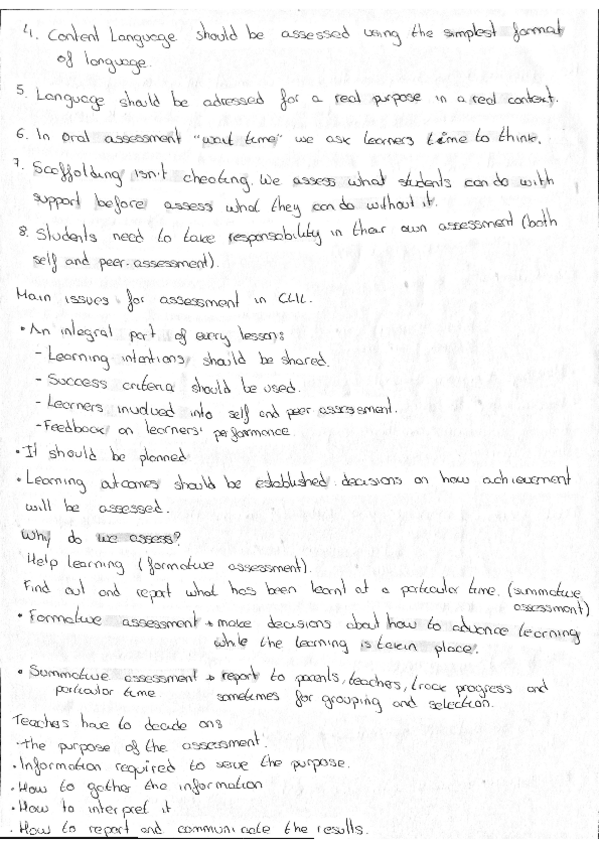 4. Content Language should be assessed using the simplest format
of language.
5. Language should be adressed for a real purpose in a real context.
6. In oral assessment "wait time" we ask learners time to think.
7. Scaffolding isn't cheating. We assess what students can do with
support before assess what they can do without it.
8. Students need to take responsability in their own assessment (both
self and peer assessment).
Main issues for assessment in CLIL.
• An integral part of every lesson:
- Learning intentions should be shared.
- Success criteria should be used.
- Learners involved into self and peer assessment.
- Feedback on learners' performance
• It should be planned
• Learning outcomes should be established: decisions on how achievement
will be assessed.
Why do we assess?
Help learning (formative assessment).
Find out and report what has been learnt at a particular time. (summative
assessment)
• Formative assessment → make decisions about how to advance learning
while the learning is takin place.
• Summative assessment → report to parents, teaches, track progress and
particular time. sometimes for grouping and selection.
Teachers have to decide on:
• the purpose of the assessment.
• Information required to serve the purpose.
• How to gather the information
• How to interpret it
• How to report and communicate the results.